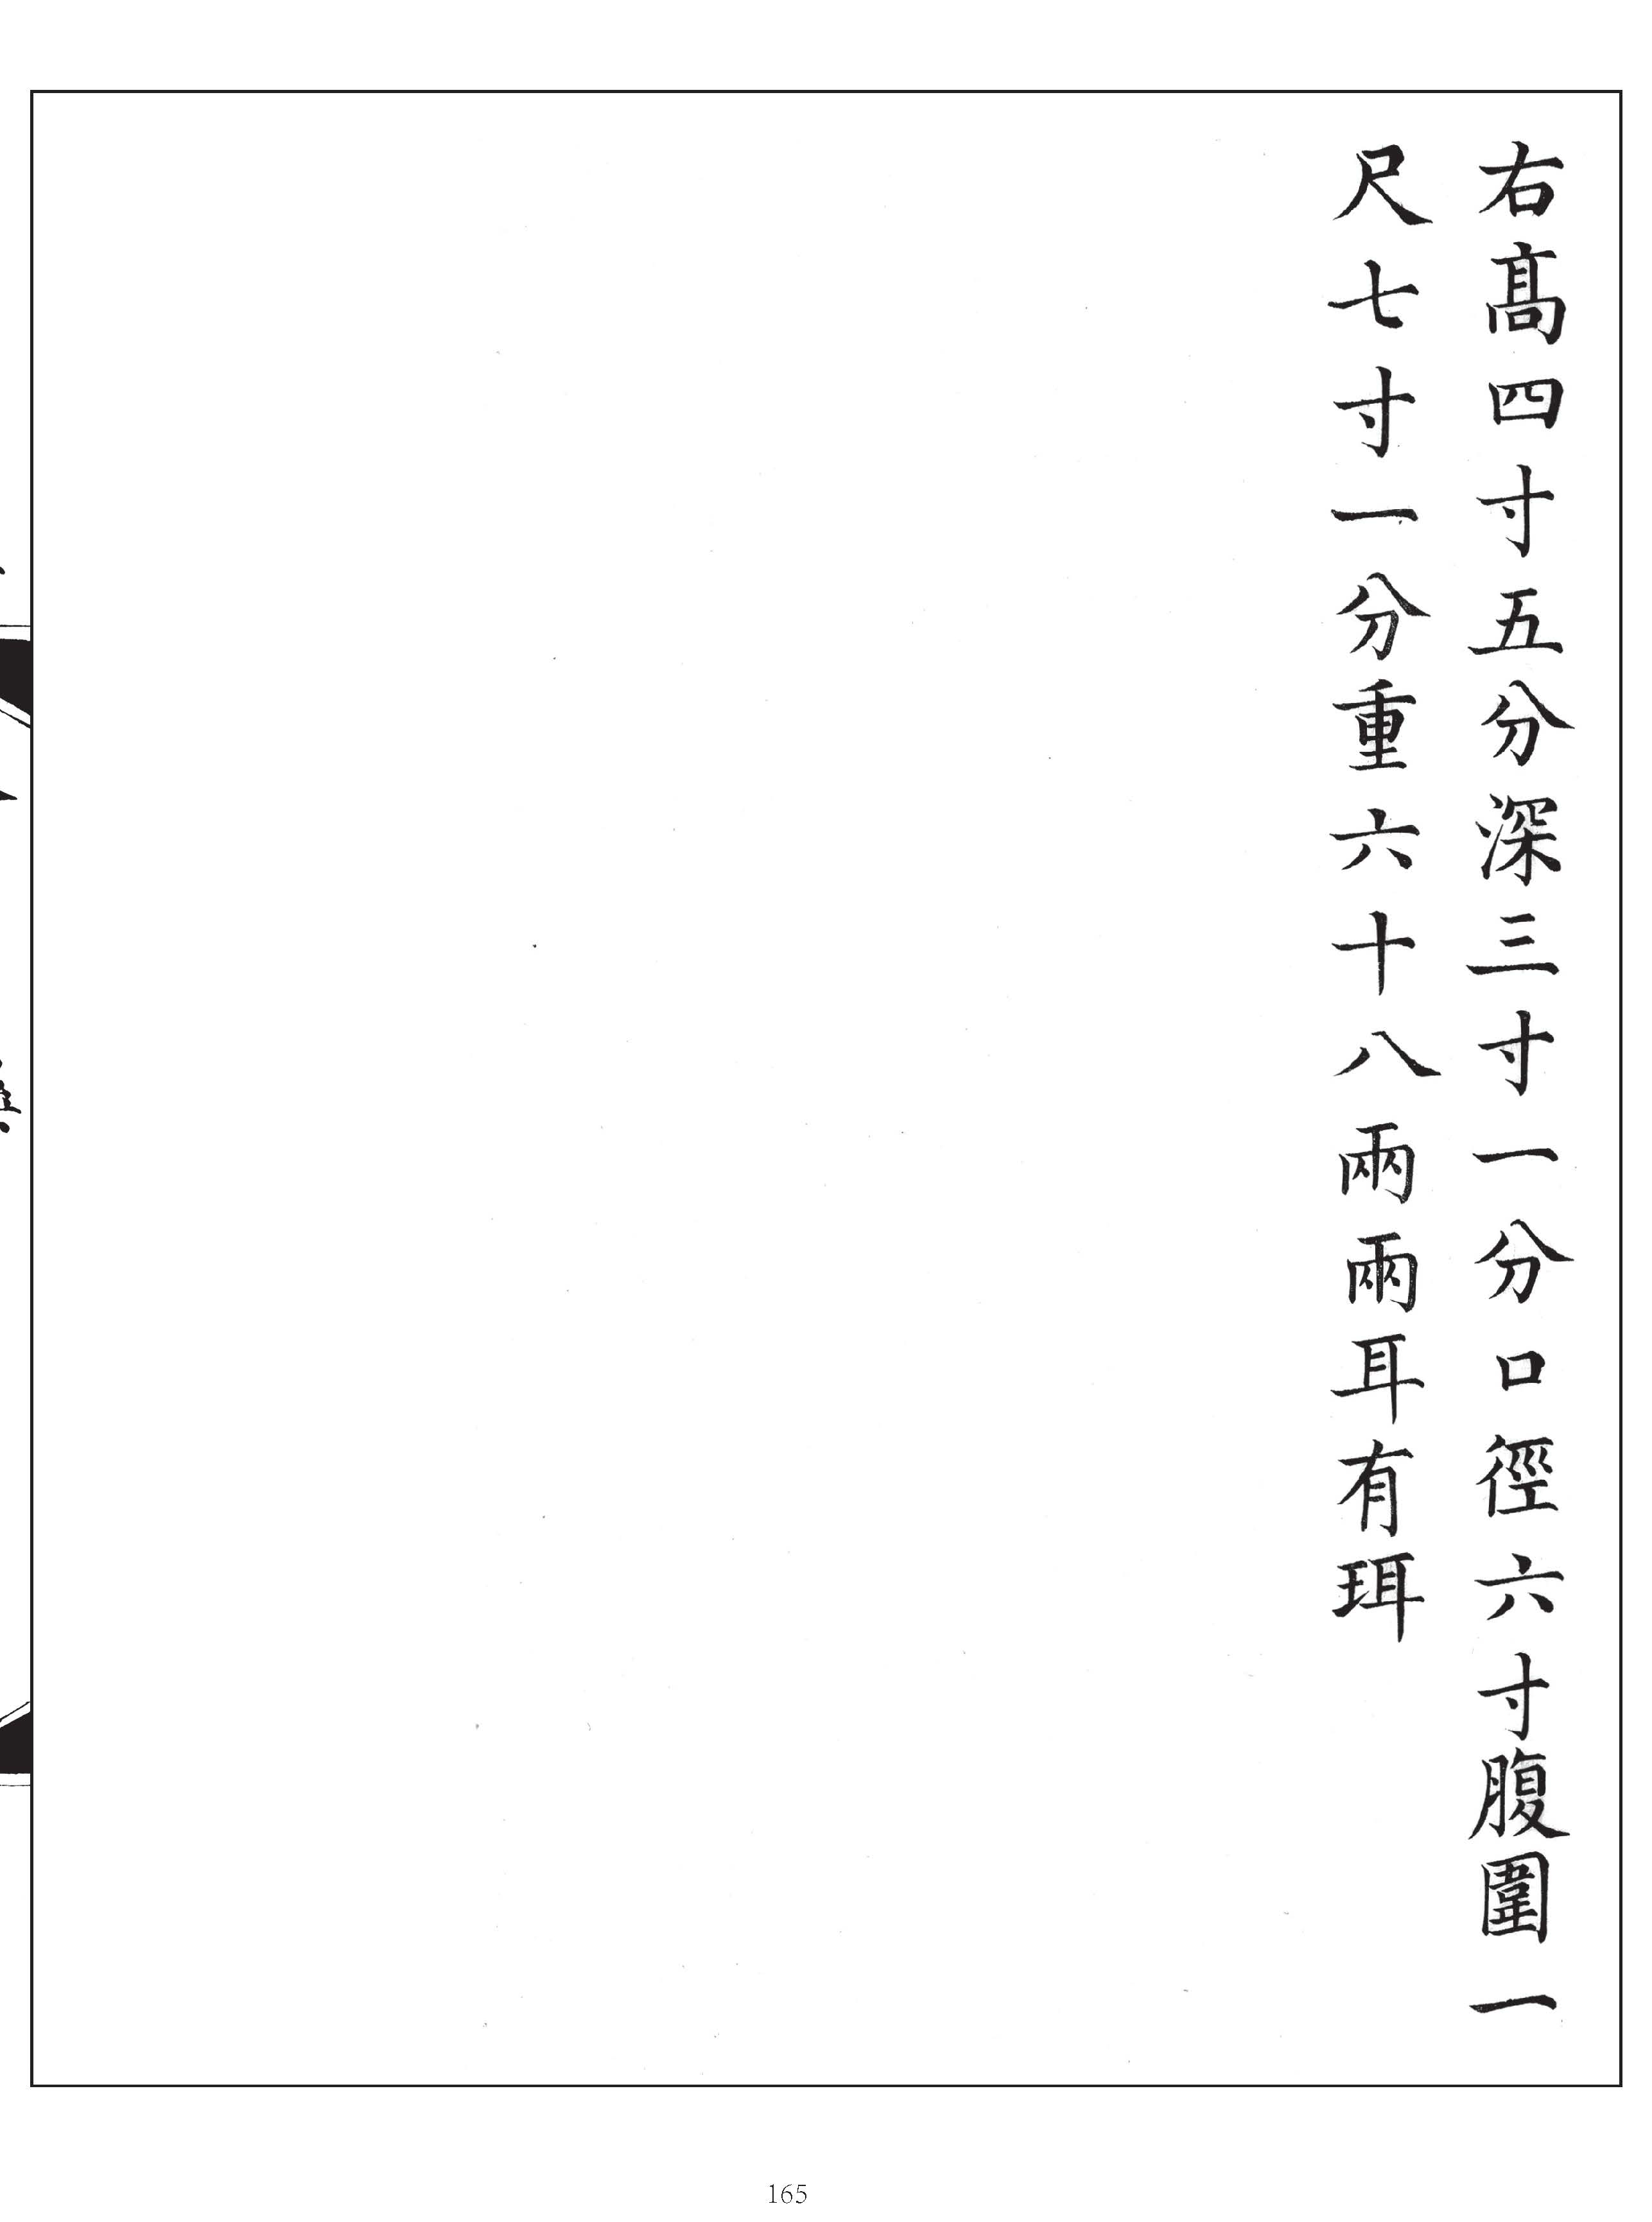 右髙四寸五分深三寸一分口徑六寸腹圍一
尺七寸一分重六十八兩兩耳有珥
165